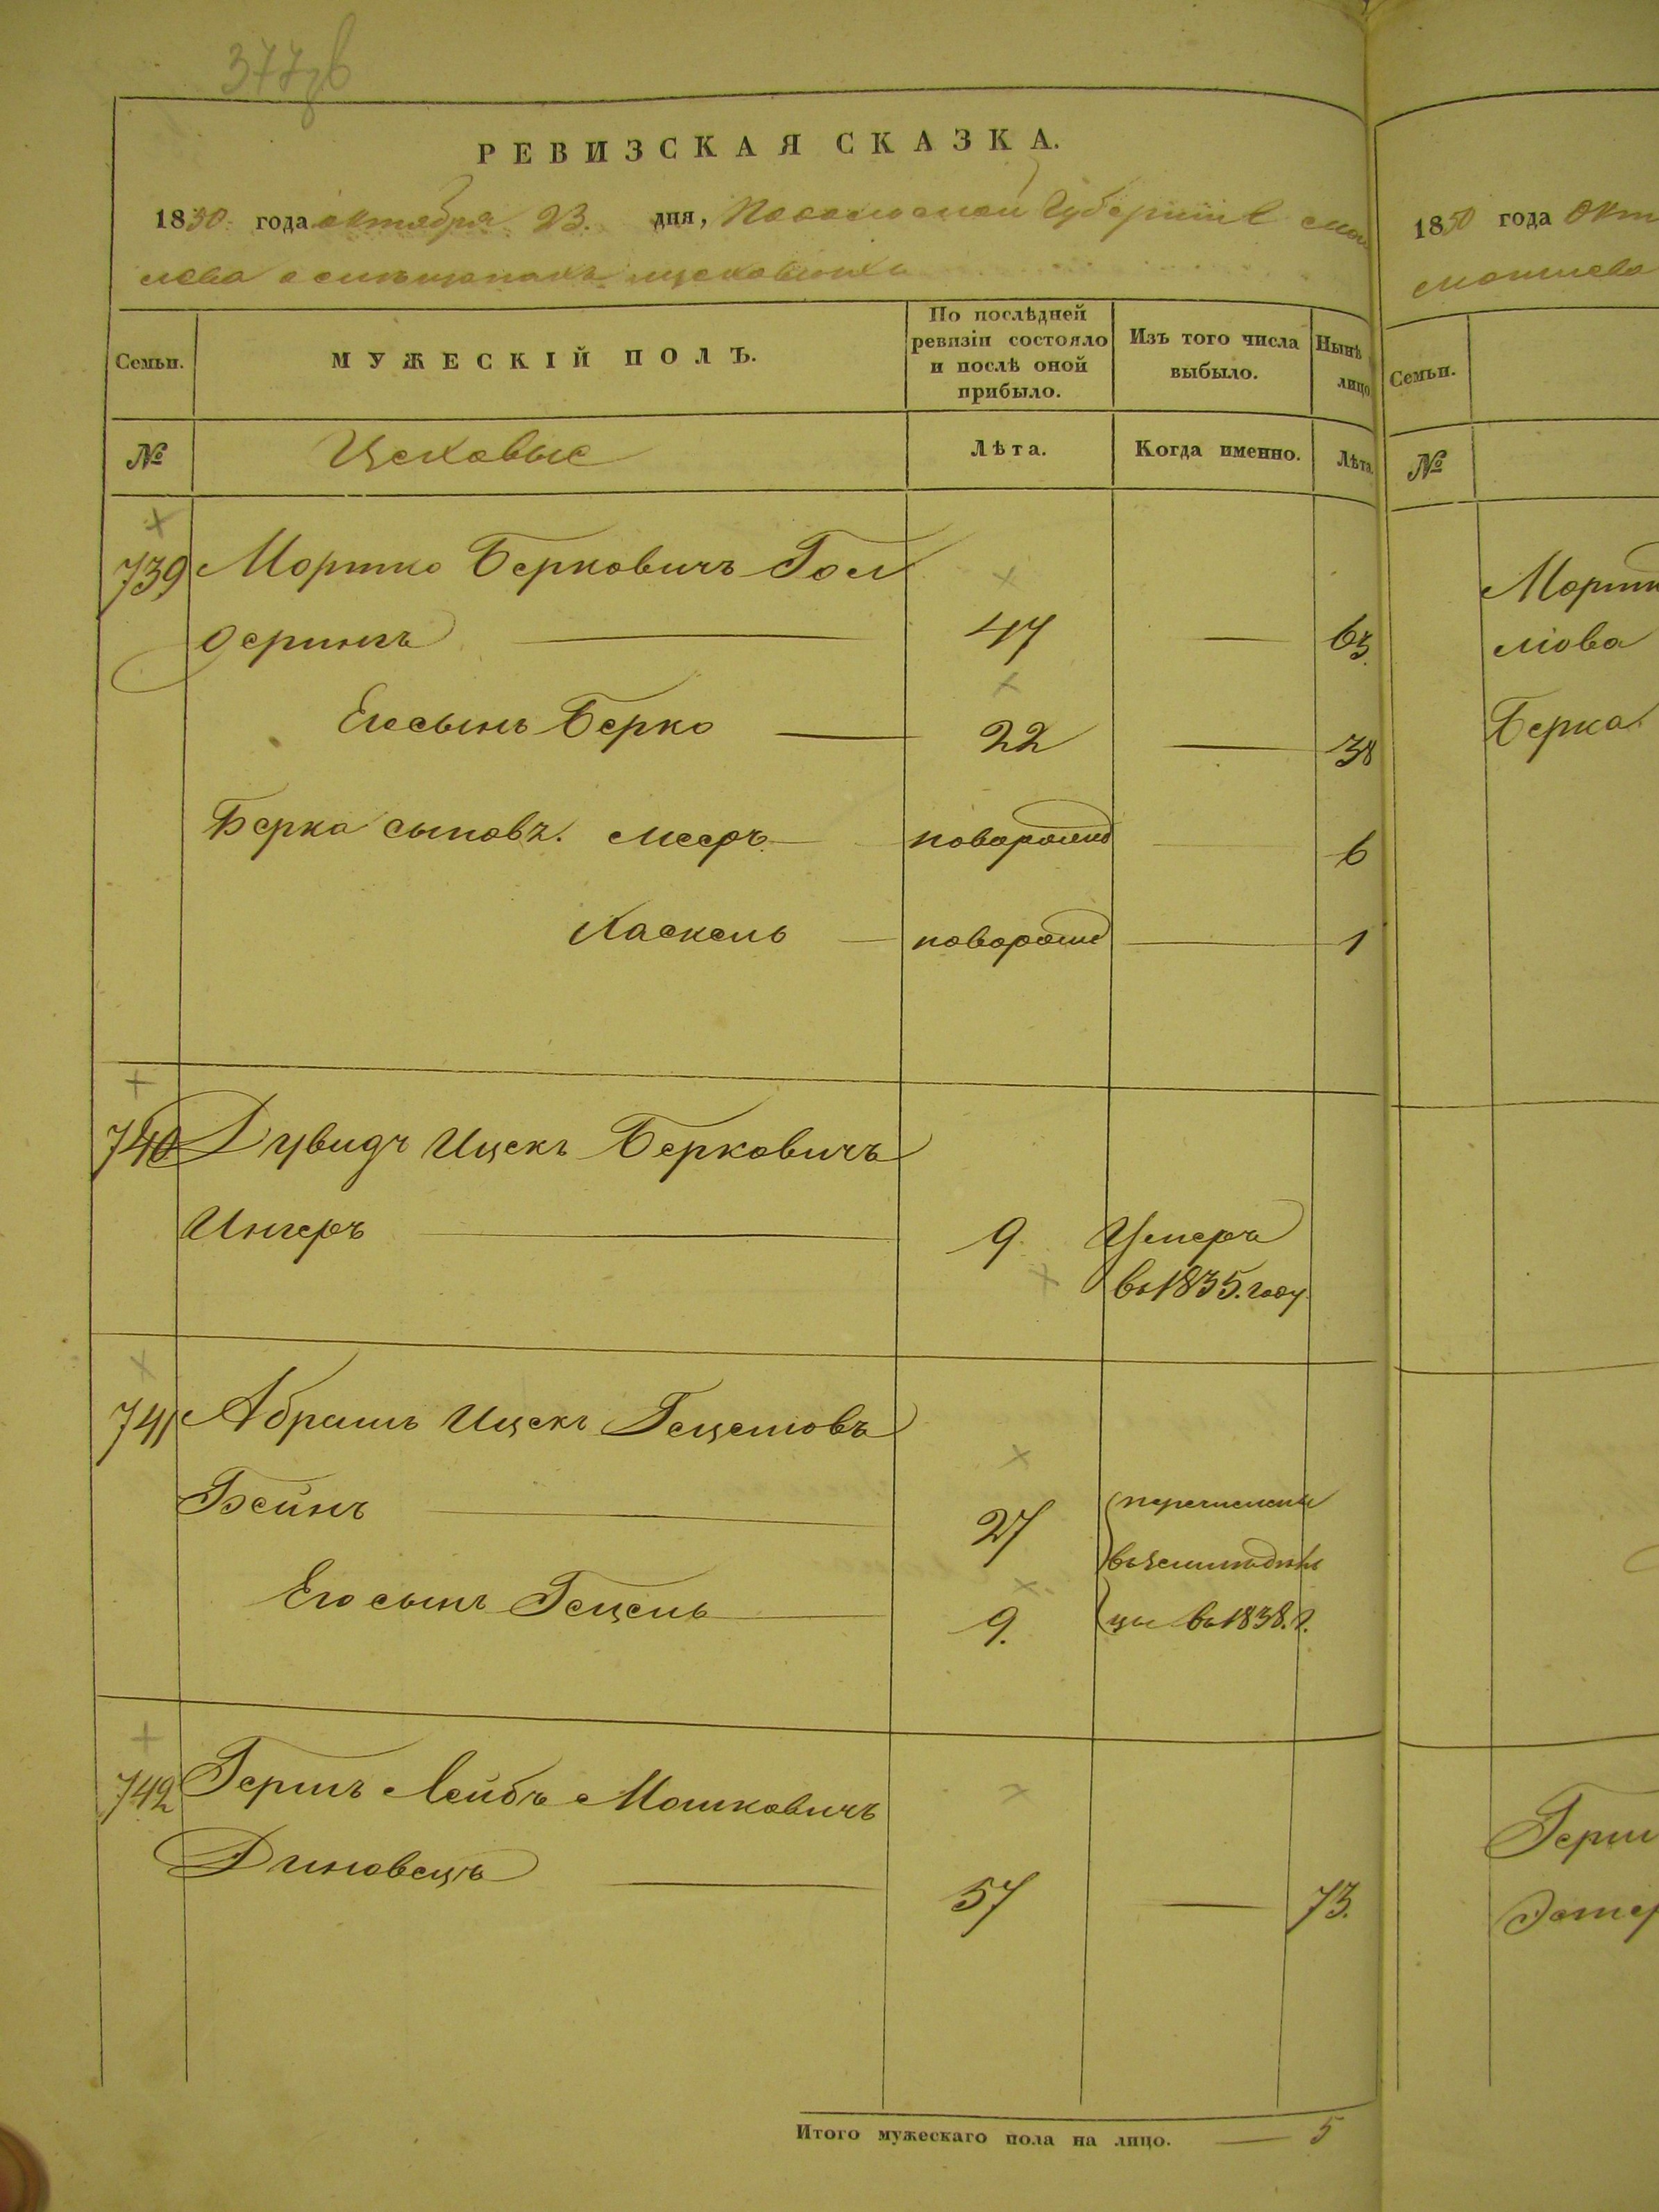 377
РЕВИЗСКАЯ СКАЗКА.
1850 года октября 23. дня, Подольской Губернии
цеховыхъ
Семьи.
МУЖЕСКІЙ ПОЛЪ.
По послѣдней ревизіи состояло и послѣ оной прибыло.
Изъ того числа выбыло.
Нынѣ лицо
№
Цеховые
Лѣта.
Когда именно.
Лѣта.
739 Мортко Берковичъ Гол
дерингъ 47 — 63.
Его сынъ Берко — 22 — 38
Берка сыновъ. Мееръ — новорожд — 6
Хаскель — новорожд — 1
740 Дувидъ Ицекъ Берковичъ
Ингеръ — 9. Умеръ
въ 1835. году
741 Абрамъ Ицекъ Гецелювъ
Бейнъ — 27 перечислены
Его сынъ Гецель — 9. цы въ 1838. г.
742 Гершъ Лейбъ Мошковичъ
Диновецъ — 57 — 73.
Итого мужескаго пола на лицо. — 5
1850 года Окт
Семьи.
№
Мортк
Берка
Герш
Эстер